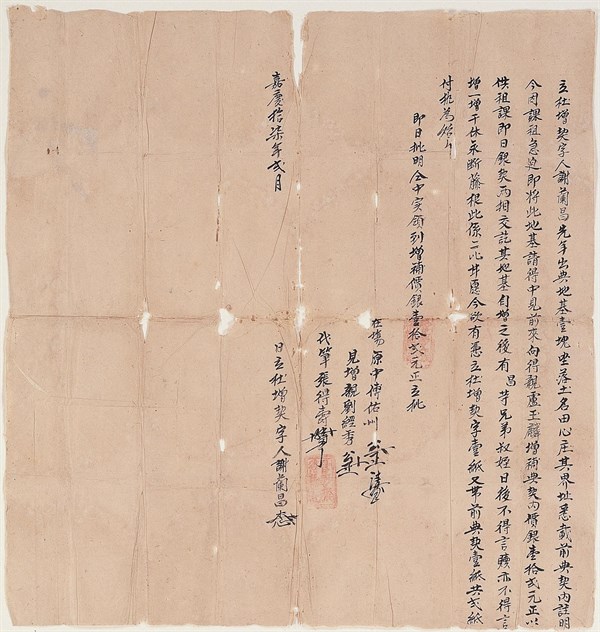 立杜增契字人謝蘭昌先年出典地基壹塊坐落土名田心庄其界址悉載前典契內註明
今因課租急迫即將此地基請得中見前來向得親盧玉麟增補典契內價銀壹拾弍元正以
供租課即日銀契兩相交訖其地基自增之後有昌等兄弟叔姪日後不得言贖亦不得言
增一增千休永斷藤根此係二比甘愿今欲有憑立杜增契字壹紙又帶前典契壹紙共弍紙
付執為炤
即日批明仝中实領到增補價銀壹拾弍元正立批
在塲原中傅佑州
見增親劉經秀
代筆張得壽
嘉慶拾柒年弍月
日立杜增契字人謝蘭昌